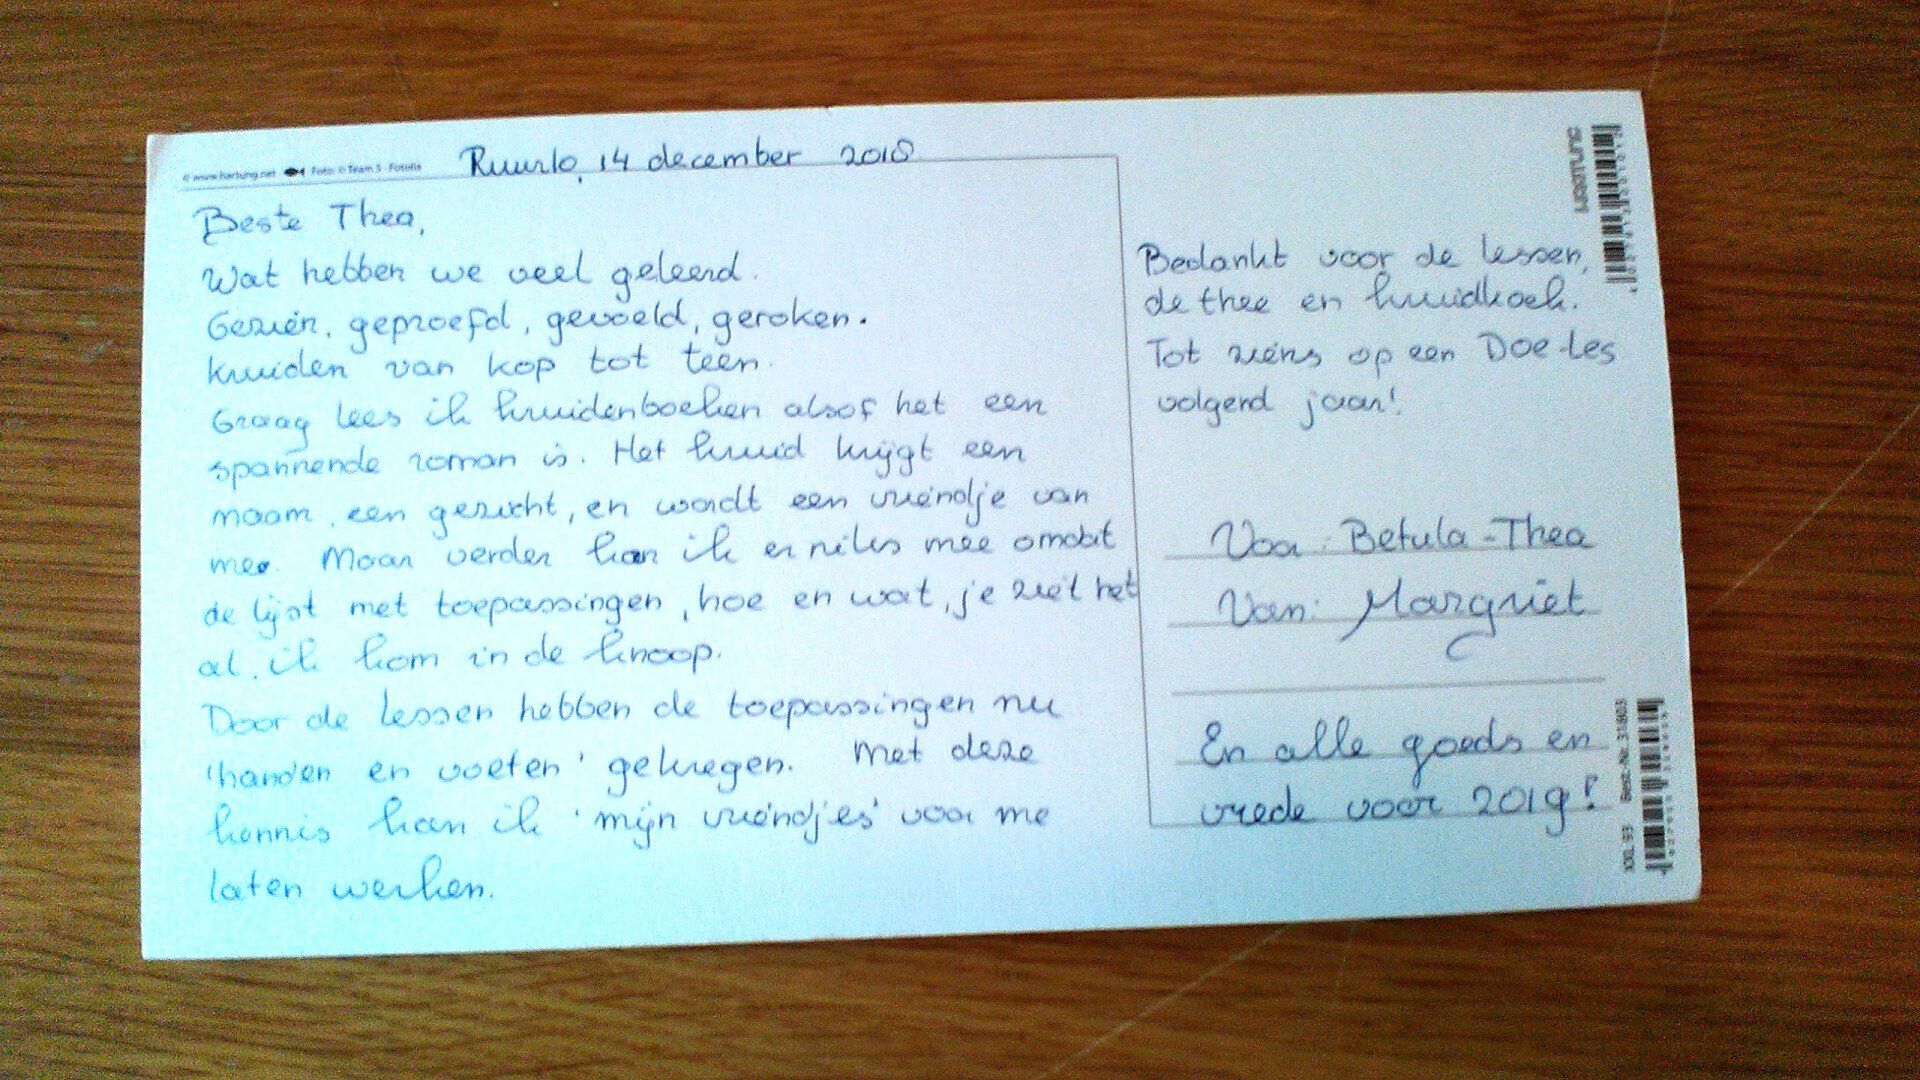 © www.hartung.net Foto: © Team 5 - Fotolia
Ruurlo, 14 december 2018
Beste Thea,
Wat hebben we veel geleerd.
Gezien, geproefd, gevoeld, geroken.
kruiden van kop tot teen.
Graag lees ik kruidenboeken alsof het een
spannende roman is. Het kruid krijgt een
naam, een gezicht, en wordt een vriendje van
me. Maar verder kan ik er niks mee omdat
de lijst met toepassingen, hoe en wat, je ziet het
al, ik kom in de knoop.
Door de lessen hebben de toepassingen nu
'handen en voeten' gekregen. Met deze
kennis kan ik 'mijn vriendjes' voor me
laten werken.
Bedankt voor de lessen,
de thee en kruidkoek.
Tot ziens op een Doe-les
volgend jaar!
Voor: Betula-Thea
Van: Margriet
En alle goeds en
vrede voor 2019!
HARTUNG
XXL 93 Best.-Nr. 31803